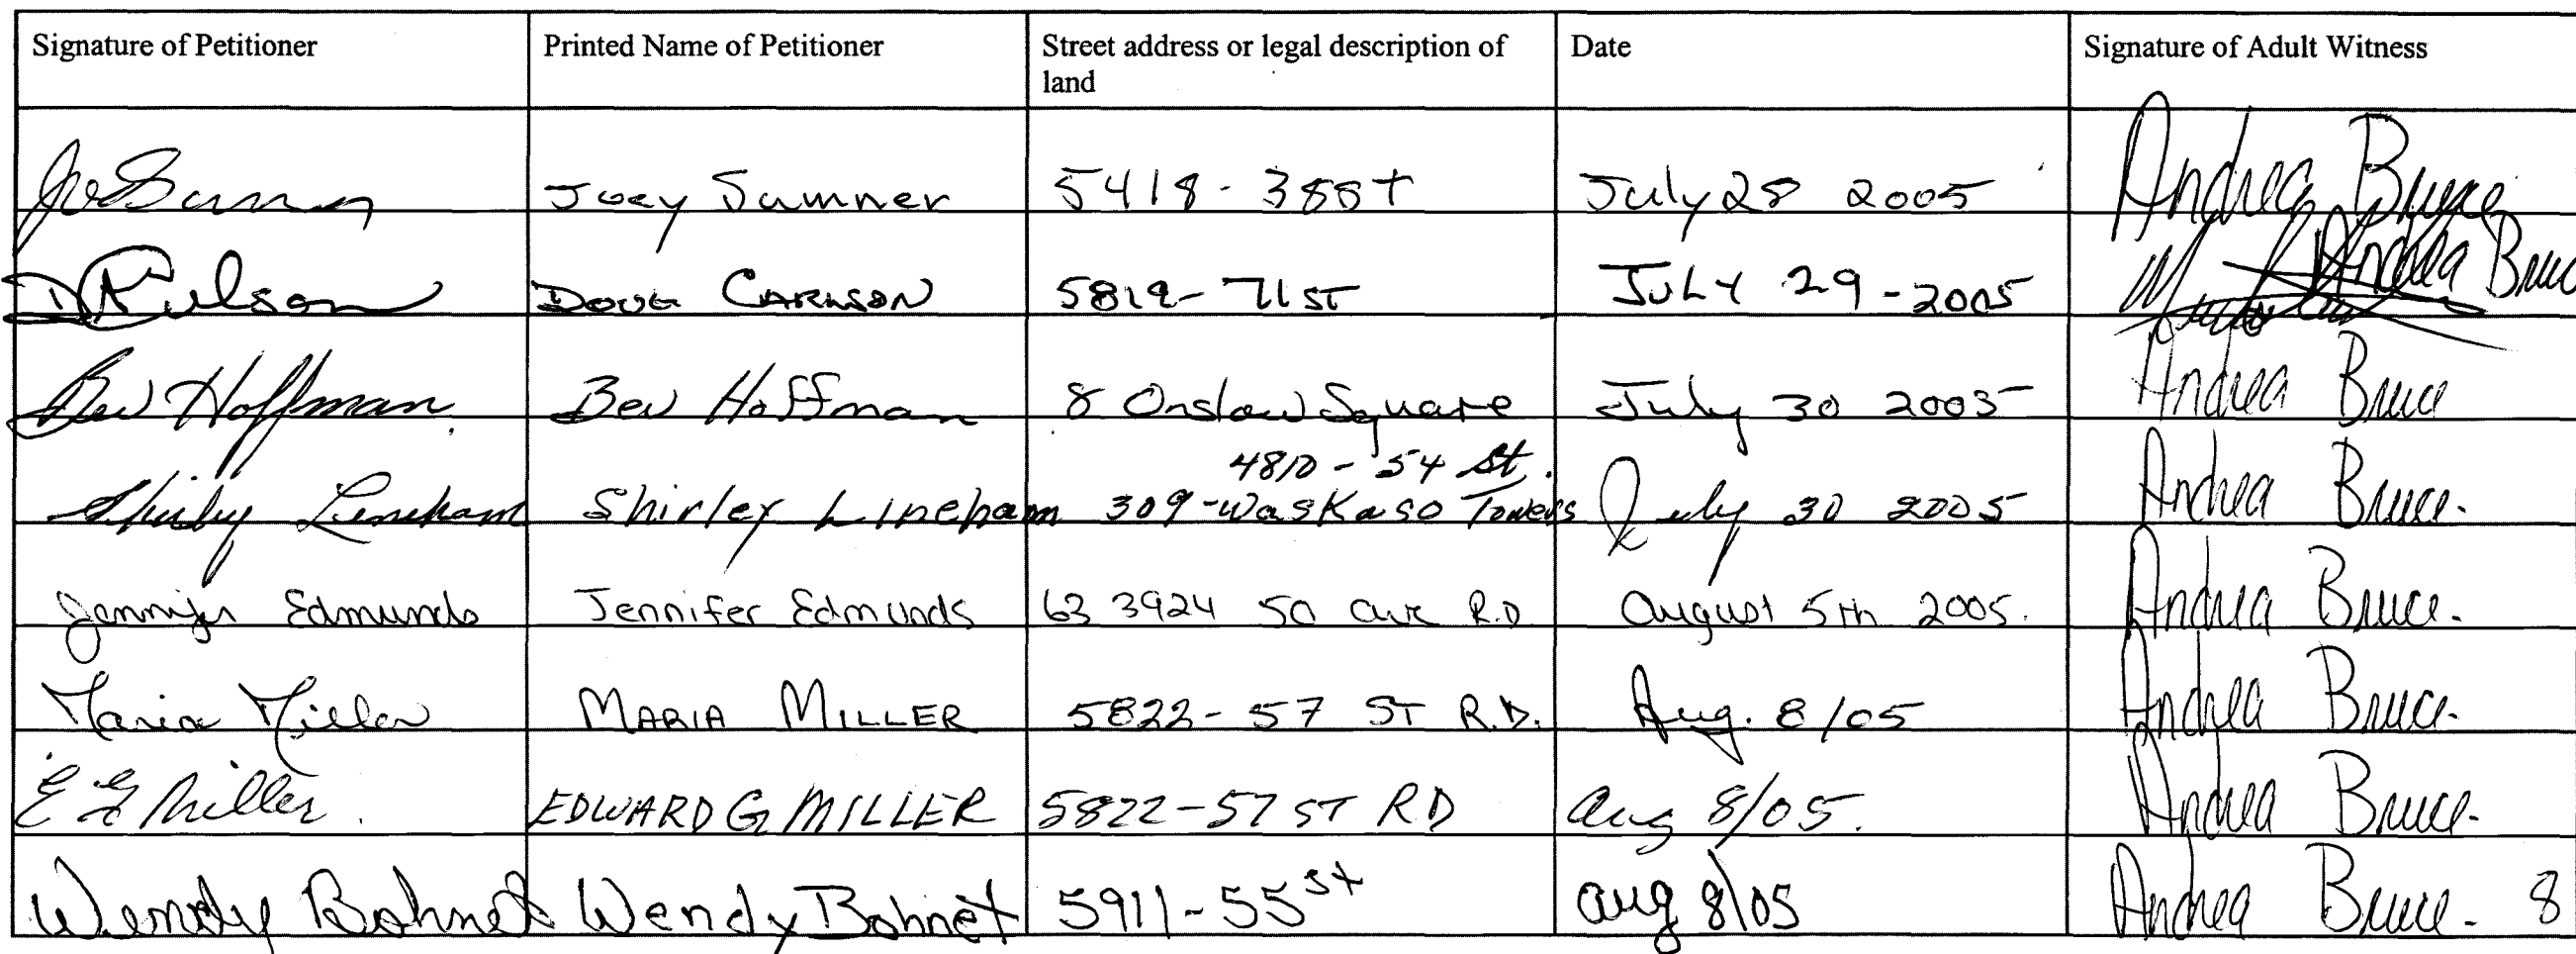 Signature of Petitioner Printed Name of Petitioner Street address or legal description of land Date Signature of Adult Witness
Joey Sumner 5418 - 38St July 28 2005 Andrea Bruce
DOUG CARLSON 5819 - 71 ST JULY 29 - 2005 Andrea Bruce
Bev Hoffman Bev Hoffman 8 Onslow Square July 30 2005 Andrea Bruce
4810 - 54 St.
Shirley Lineham Shirley Lineham 309 - Waskaso Towers July 30 2005 Andrea Bruce.
Jennifer Edmunds Jennifer Edmunds 63 3924 50 ave R.D August 5th 2005. Andrea Bruce.
Maria Miller MARIA MILLER 5822 - 57 ST R.D. Aug. 8/05 Andrea Bruce.
E G Miller. EDWARD G MILLER 5822 - 57 ST RD Aug 8/05. Andrea Bruce.
Wendy Bohnet Wendy Bohnet 5911 - 55 St aug 8/05 Andrea Bruce. 8